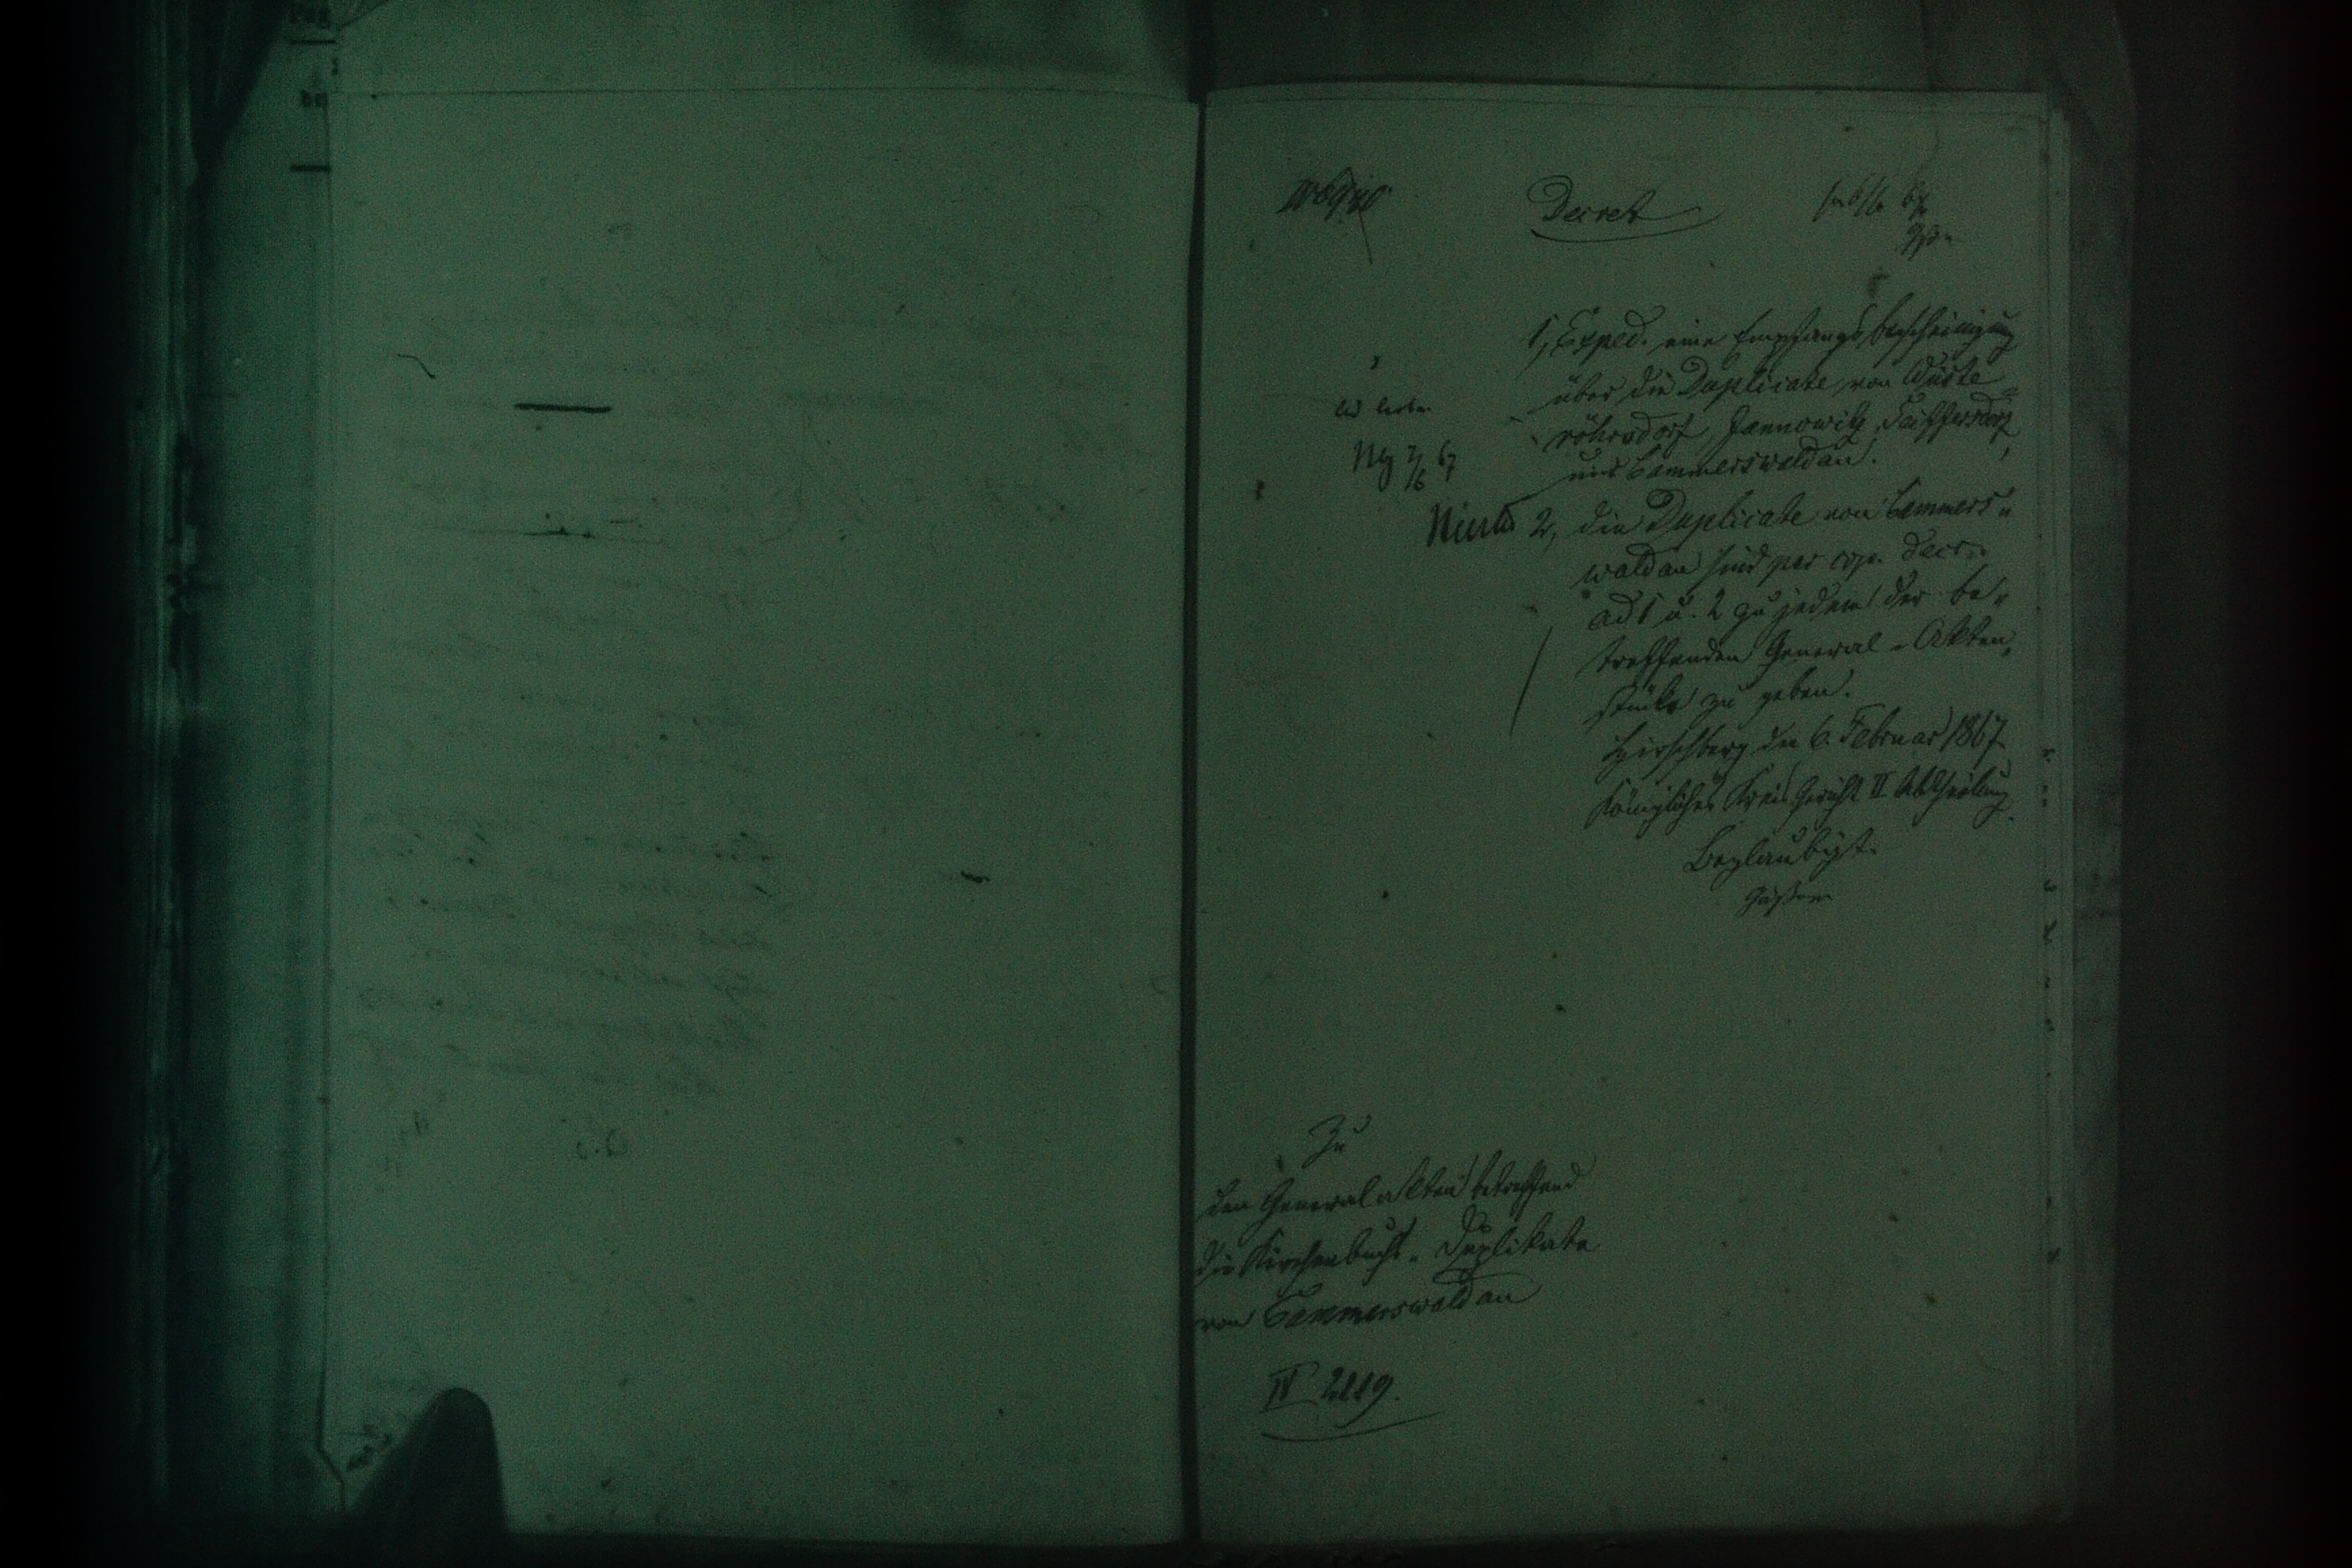 Decret
1, Exped. eine Empfangsbescheinigung
über die Duplicate von Wüste
röhrsdorf, Jannowitz, Seiffersdorf,
und Cammerswaldau.
2, die Duplicate von Cammers„
waldau sind per cop. decr.
ad 1 u. 2 zu jedem der be„
treffenden General-Akten„
stücke zu geben.
Hirschberg den 6. Februar 1867
Königliches Kreis Gericht II Abtheilung.
Beglaubigt.
Zu
den Generalakten betreffend
die Kirchenbuchs-Duplikate
von Cammerswaldau
IV 2119.